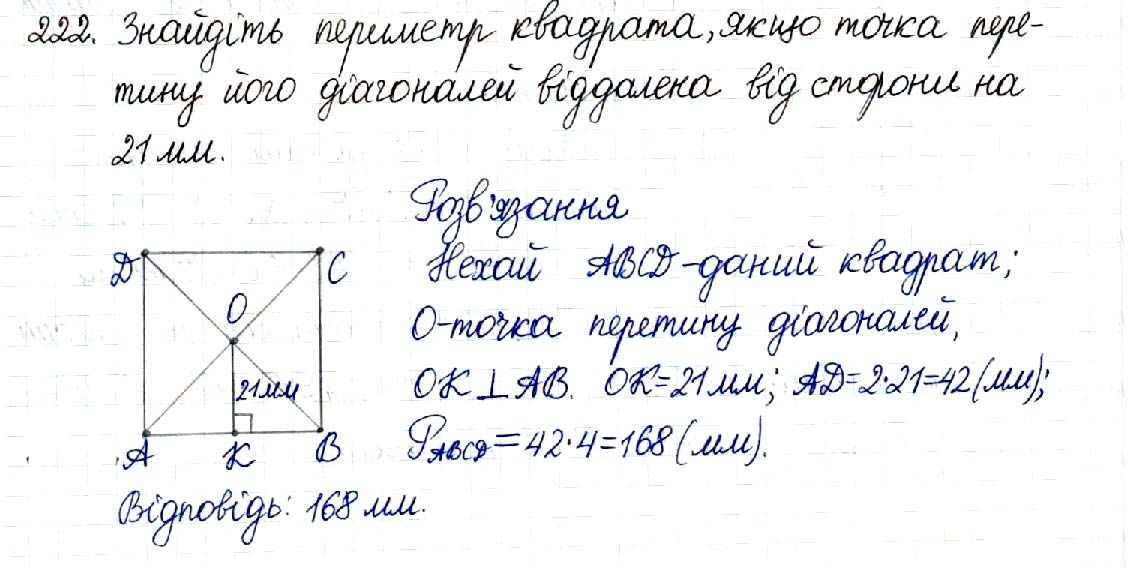 222. Знайдіть периметр квадрата, якщо точка пере-
тину його діагоналей віддалена від сторони на
21 мм.
Розв'язання
Нехай ABCD - даний квадрат;
O - точка перетину діагоналей,
OK ⊥ AB. OK = 21 мм; AD = 2·21 = 42 (мм);
P ABCD = 42·4 = 168 (мм).
D
C
O
21 мм
A
K
B
Відповідь: 168 мм.